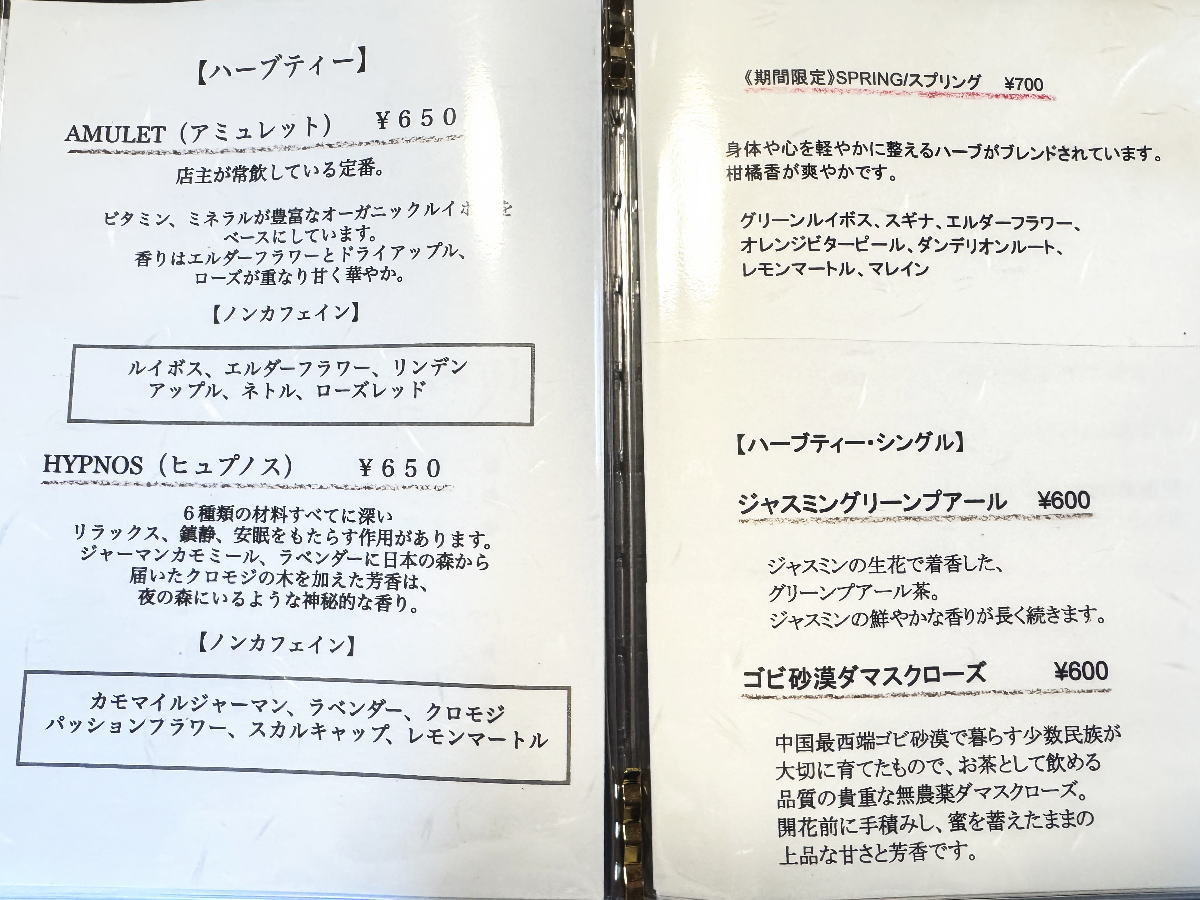 【ハーブティー】
AMULET（アミュレット） ￥６５０
店主が常飲している定番。
ビタミン、ミネラルが豊富なオーガニックルイボ を
ベースにしています。
香りはエルダーフラワーとドライアップル、
ローズが重なり甘く華やか。
【ノンカフェイン】
ルイボス、エルダーフラワー、リンデン
アップル、ネトル、ローズレッド
HYPNOS（ヒュプノス） ￥６５０
６種類の材料すべてに深い
リラックス、鎮静、安眠をもたらす作用があります。
ジャーマンカモミール、ラベンダーに日本の森から
届いたクロモジの木を加えた芳香は、
夜の森にいるような神秘的な香り。
【ノンカフェイン】
カモマイルジャーマン、ラベンダー、クロモジ
パッションフラワー、スカルキャップ、レモンマートル
《期間限定》SPRING/スプリング ¥700
身体や心を軽やかに整えるハーブがブレンドされています。
柑橘香が爽やかです。
グリーンルイボス、スギナ、エルダーフラワー、
オレンジビターピール、ダンデリオンルート、
レモンマートル、マレイン
【ハーブティー・シングル】
ジャスミングリーンプアール ¥600
ジャスミンの生花で着香した、
グリーンプアール茶。
ジャスミンの鮮やかな香りが長く続きます。
ゴビ砂漠ダマスクローズ ¥600
中国最西端ゴビ砂漠で暮らす少数民族が
大切に育てたもので、お茶として飲める
品質の貴重な無農薬ダマスクローズ。
開花前に手積みし、蜜を蓄えたままの
上品な甘さと芳香です。